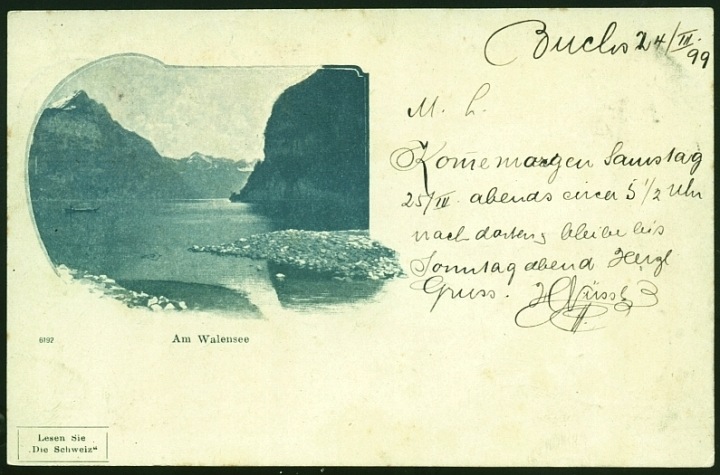 Buchs 24/III.
99
M. L.
Kom̅e morgen Samstag
25/III. abends circa 5 1/2 Uhr
nach dorten, bleibe bis
Sonntag abend Herzl
Gruss.
6192
Am Walensee
Lesen Sie
„Die Schweiz“